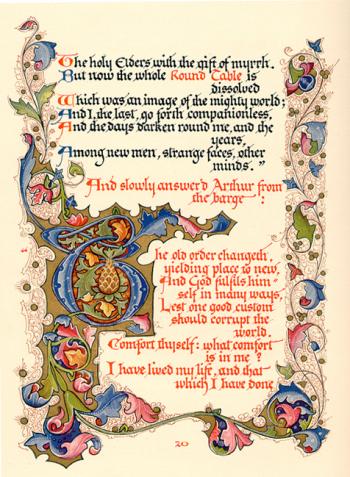 The holy Elders with the gift of myrrh.
But now the whole Round Table is
dissolved
Which was an image of the mighty world;
And I, the last, go forth companionless,
And the days darken round me, and the
years,
Among new men, strange faces, other
minds."
And slowly answer'd Arthur from
the barge:
The old order changeth,
yielding place to new,
And God fulfils him-
self in many ways,
Lest one good custom
should corrupt the
world.
Comfort thyself: what comfort
is in me?
I have lived my life, and that
which I have done
20